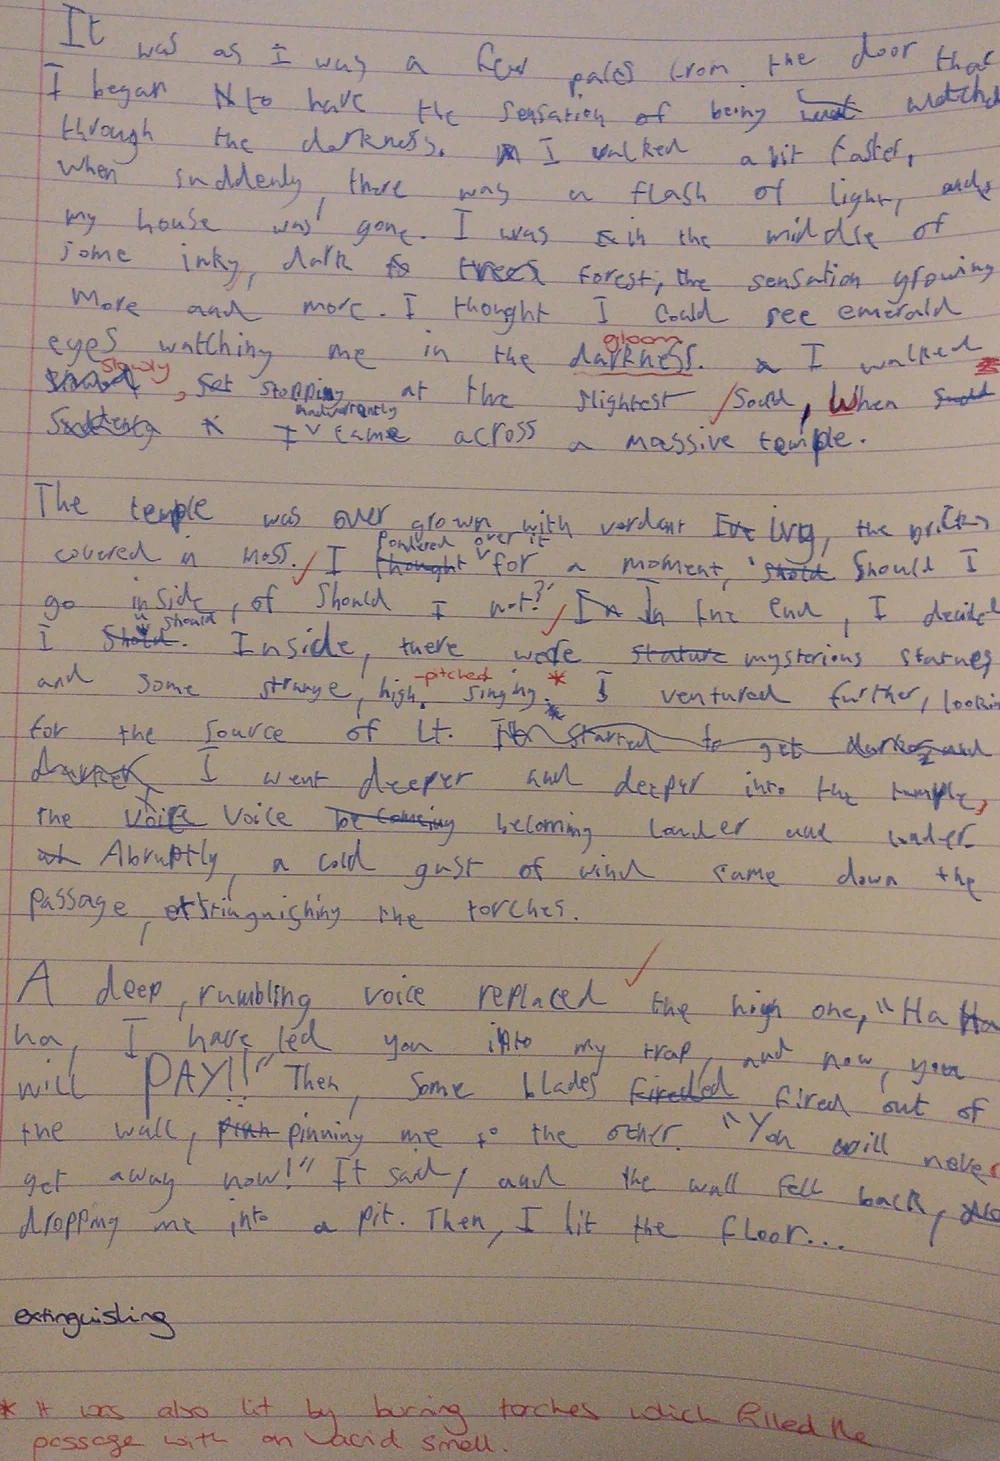 It was as I was a few paces from the door that
I began to have the sensation of being watched
through the darkness. I walked a bit faster,
when suddenly, there was a flash of light, and
my house was gone. I was in the middle of
some inky, dark trees forest, the sensation growing
more and more. I thought I could see emerald
gloom
eyes watching me in the darkness. I walked
slowly, stopping at the slightest sound, When
inadvertently
I came across a massive temple.
The temple was over grown with verdant ivy, the bricks
pondered over it
covered in moss. I thought for a moment, 'Should I
go inside, of should I not?' In the end, I decided
should
I. Inside, there were stature mysterious statues
-pitched
and some strange, high singing. * I ventured further, looking
for the source of it. started to get darker and
I went deeper and deeper into the temple,
the voice becoming louder and louder.
Abruptly, a cold gust of wind came down the
passage, exstinguishing the torches.
A deep, rumbling voice replaced the high one, "Ha Ha
ha, I have led you into my trap, and now, you
will PAY!!" Then, some blades fired out of
the wall, pinning me to the other. "You will never
get away now!" It said, and the wall fell back,
dropping me into a pit. Then, I hit the floor...
extinguishing
* It was also lit by burning torches which filled the
passage with an acid smell.